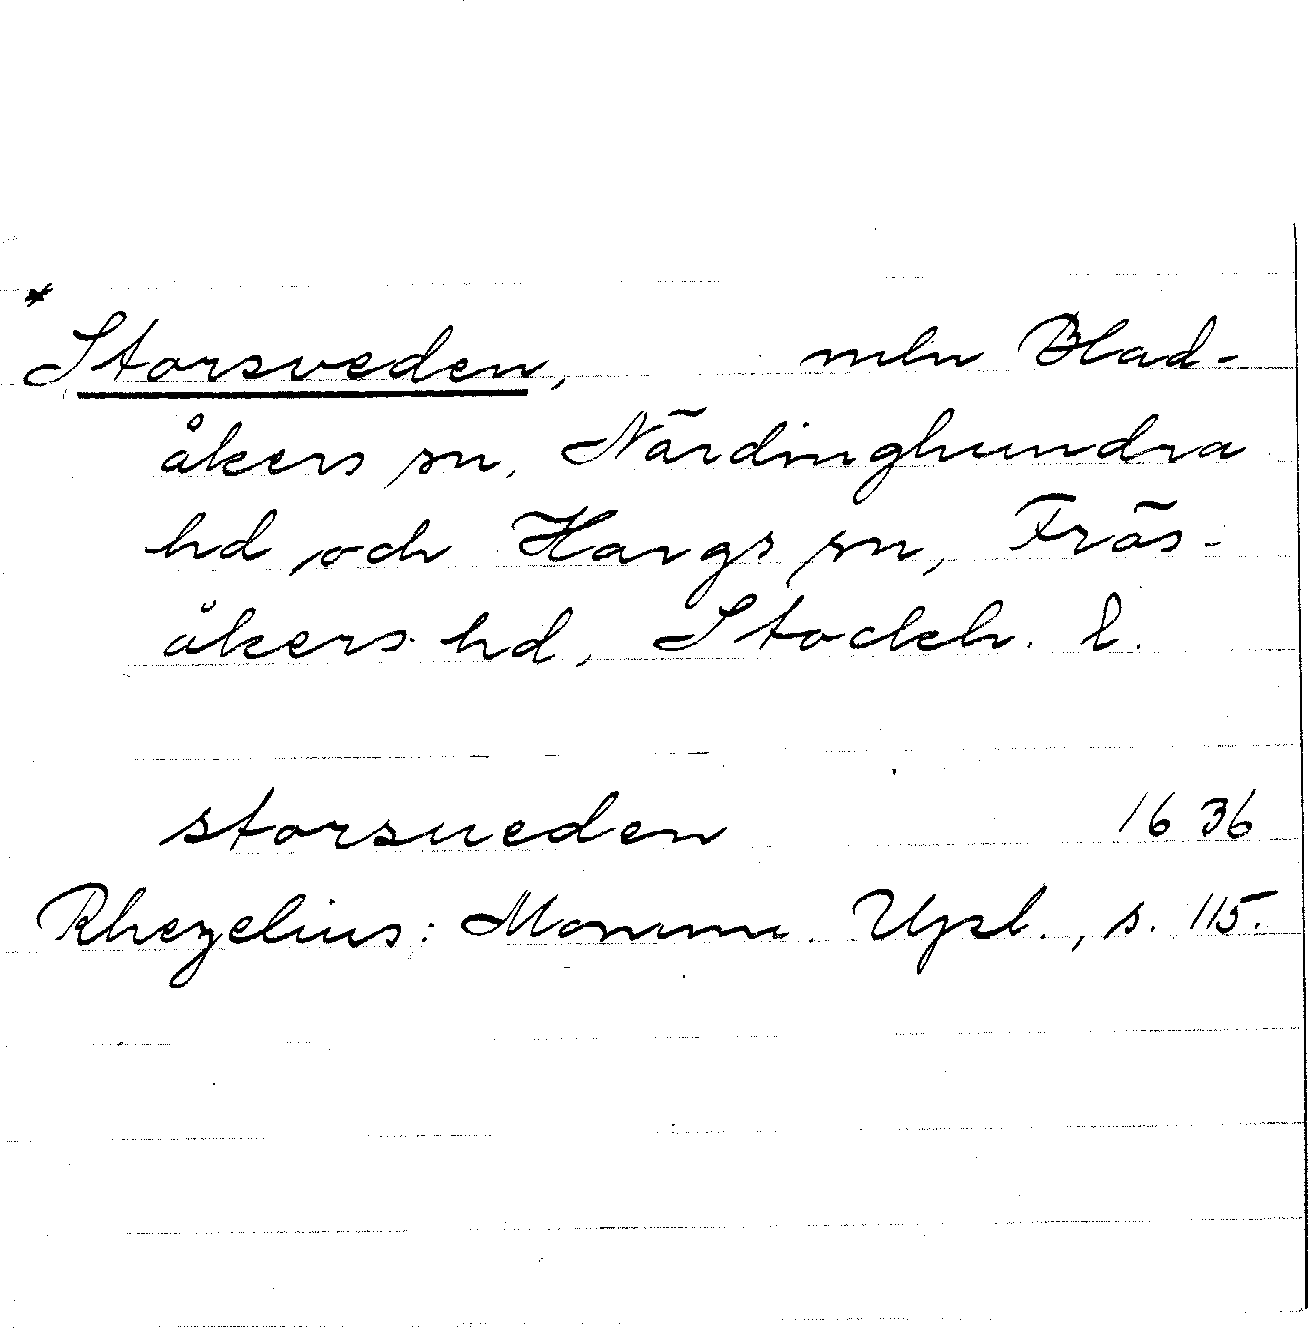 * Storsveden, mln Blad-
åkers sn, Närdinghundra
hd och Hargs sn, Frös-
åkers hd, Stockh. l.
storsueden 1636
Rhezelius: Monum. Upl., s. 115.